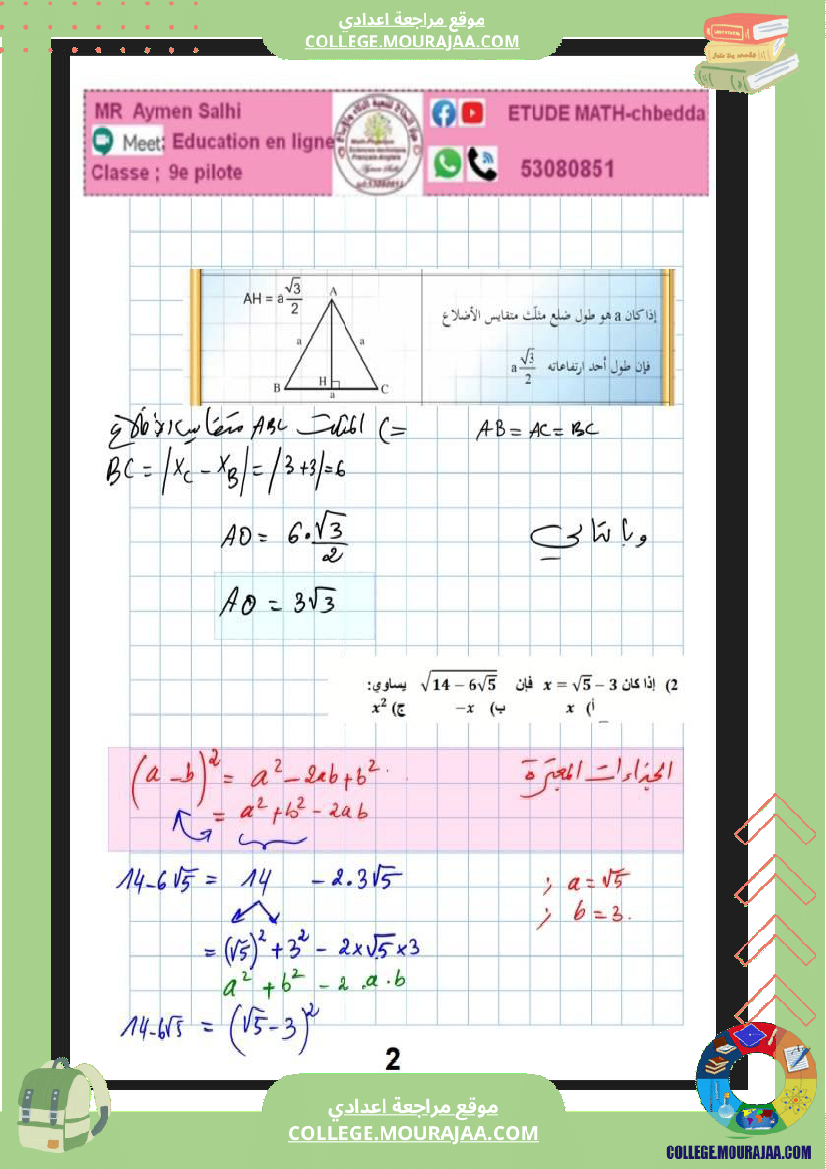 موقع مراجعة اعدادي
COLLEGE.MOURAJAA.COM
MR Aymen Salhi
Meet: Education en ligne
Classe ; 9e pilote
ETUDE MATH-chbedda
53080851
AH = a √3/2
A
a a
B H C
a
إذا كان a هو طول ضلع مثلّث متقايس الأضلاع
فإن طول أحد ارتفاعاته a √3/2
المثلث ABC متقايس الأضلاع (=
AB = AC = BC
BC = |x_C - x_B| = |3+3| = 6
وبالتالي
AO = 6·√3/2
AO = 3√3
2) إذا كان x = √5 − 3 فإن √(14 − 6√5) يساوي:
أ) x ب) −x ج) x²
الجذاءات المعتبرة
(a - b)² = a² - 2ab + b²
= a² + b² - 2ab
14 - 6√5 = 14 - 2·3√5
; a = √5
; b = 3.
= (√5)² + 3² - 2×√5×3
a² + b² - 2·a·b
14 - 6√5 = (√5 - 3)²
2
موقع مراجعة اعدادي
COLLEGE.MOURAJAA.COM
COLLEGE.MOURAJAA.COM